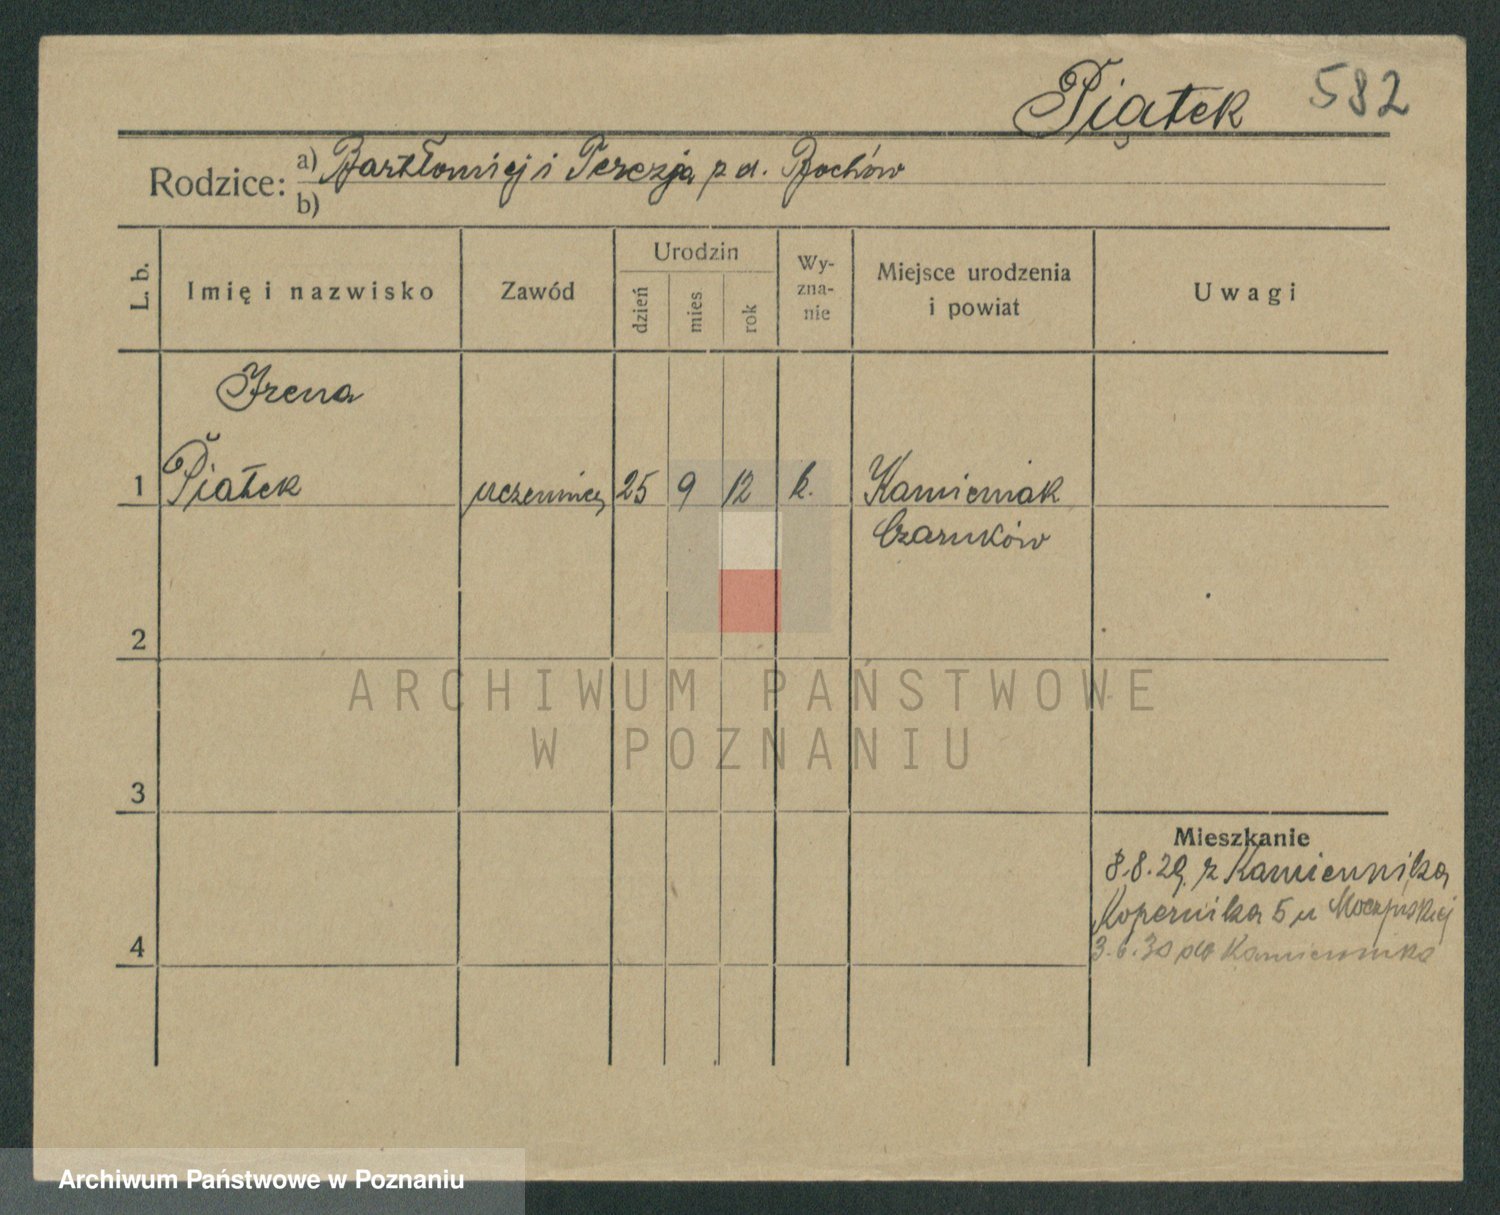 Piątek 582
Rodzice: a) Bartłomiej i Terezja z d. Bochów
b)
L. b. Imię i nazwisko Zawód Urodzin dzień mies rok Wy-zna-nie Miejsce urodzenia i powiat Uwagi
Irena
1 Piątek uczennica 25 9 12 k. Kamieniak
Czarnków
2
ARCHIWUM PAŃSTWOWE
W POZNANIU
3
Mieszkanie
8.8.29. z Kamiennika
Kopernika 5 u
4 3.6.30 do Kamiennika
Archiwum Państwowe w Poznaniu